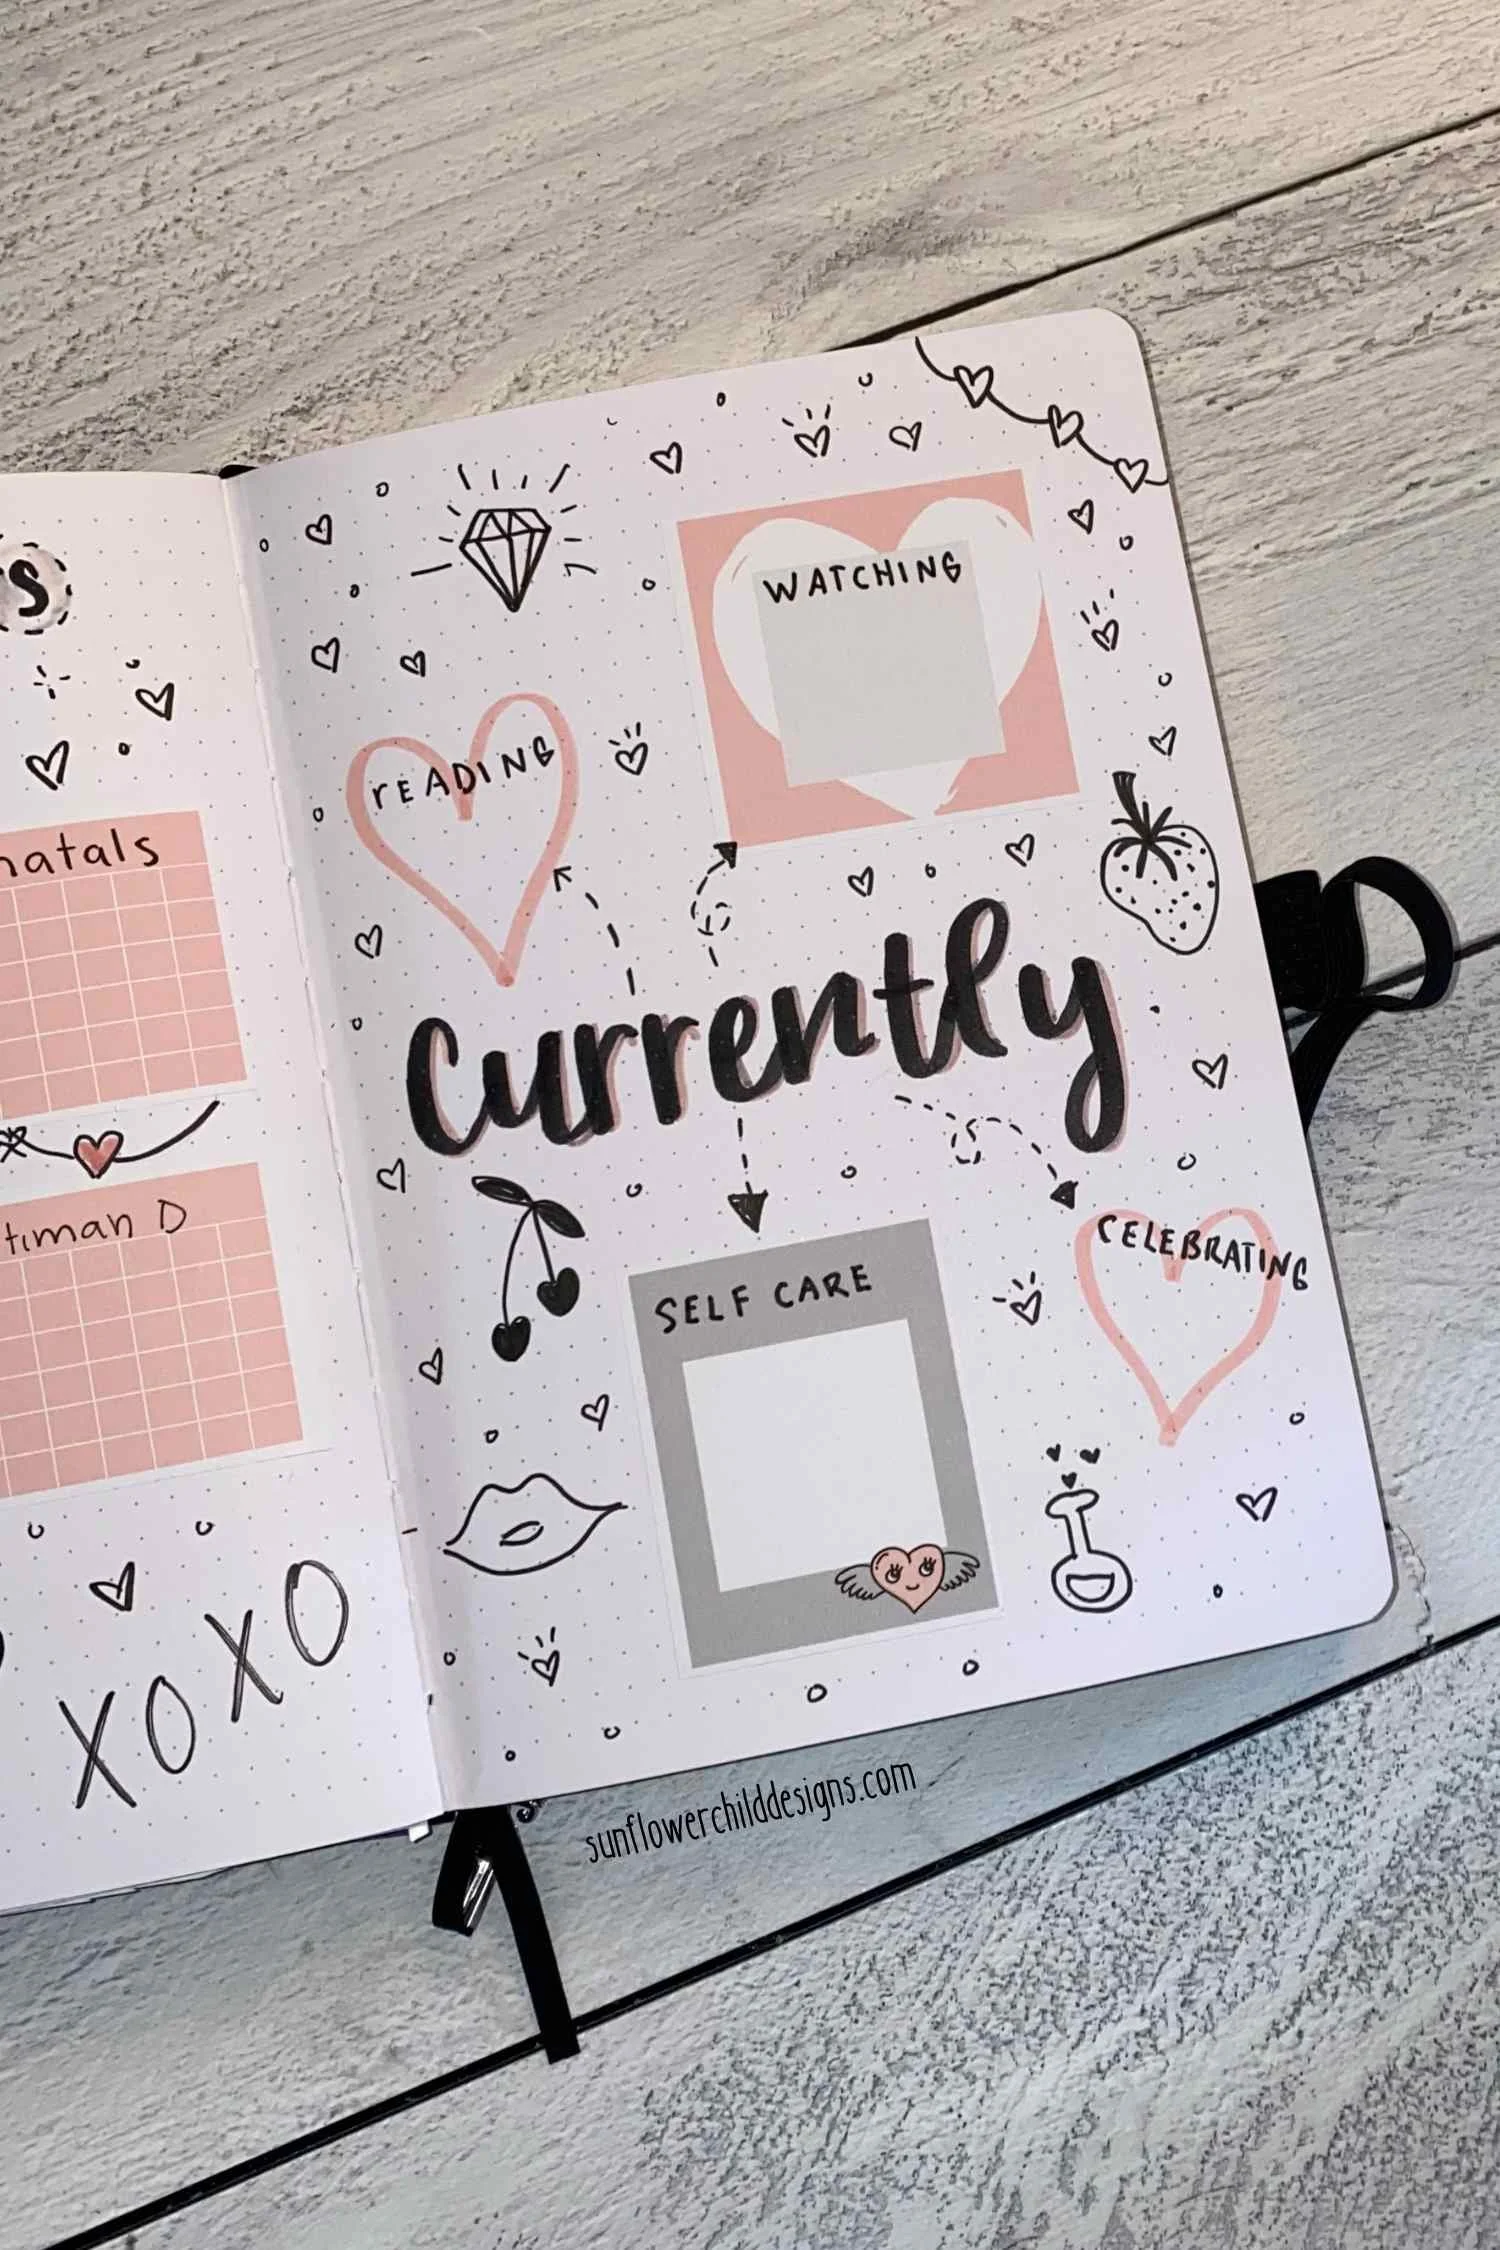 S
natals
timan D
XOXO
WATCHING
rEADING
currently
SELF CARE
CELEBRATING
sunflowerchilddesigns.com